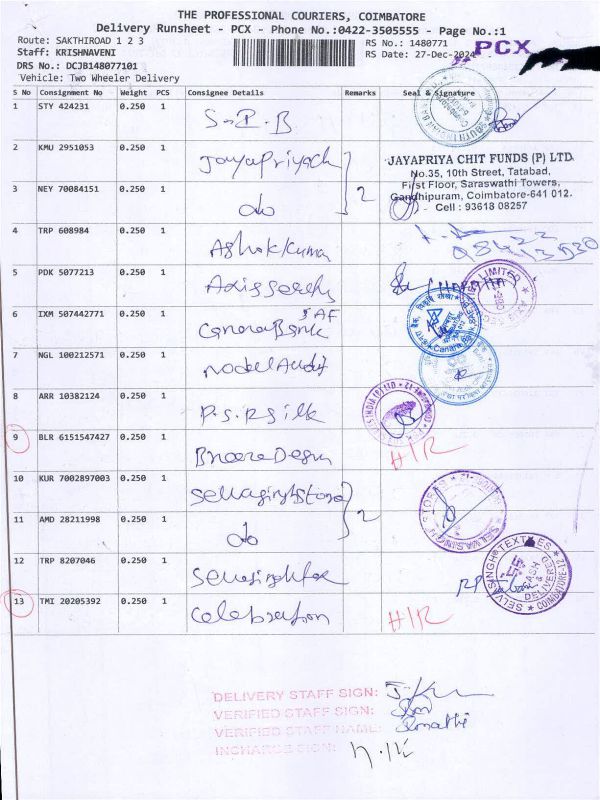 THE PROFESSIONAL COURIERS, COIMBATORE
Delivery Runsheet - PCX - Phone No.:0422-3505555 - Page No.:1
Route: SAKTHIROAD 1 2 3
RS No.: 1480771
PCX
Staff: KRISHNAVENI
RS Date: 27-Dec-2024
DRS No.: DCJB148077101
Vehicle: Two Wheeler Delivery
S No Consignment No Weight PCS Consignee Details Remarks Seal & Signature
1 STY 424231 0.250 1 S.I.B
2 KMU 2951053 0.250 1 Jayapriyach
JAYAPRIYA CHIT FUNDS (P) LTD.
No.35, 10th Street, Tatabad,
First Floor, Saraswathi Towers,
Gandhipuram, Coimbatore-641 012.
Cell : 93618 08257
3 NEY 70084151 0.250 1 do 2
4 TRP 608984 0.250 1 Ashok Kumar
5 PDK 5077213 0.250 1 Axis
6 IXM 507442771 0.250 1 Canara Bank
7 NGL 100212571 0.250 1 Nodel Audit
8 ARR 10382124 0.250 1 P.S.R Silk
9 BLR 6151547427 0.250 1 H/R
10 KUR 7002897003 0.250 1
11 AMD 28211998 0.250 1 do 2
12 TRP 8207046 0.250 1
SELVASINGH TEXTILES
CASH & DELIVERED
COIMBATORE-12
13 TMI 20205392 0.250 1 Celebration H/R
DELIVERY STAFF SIGN:
VERIFIED STAFF SIGN:
VERIFIED STAFF NAME:
INCHARGE SIGN: